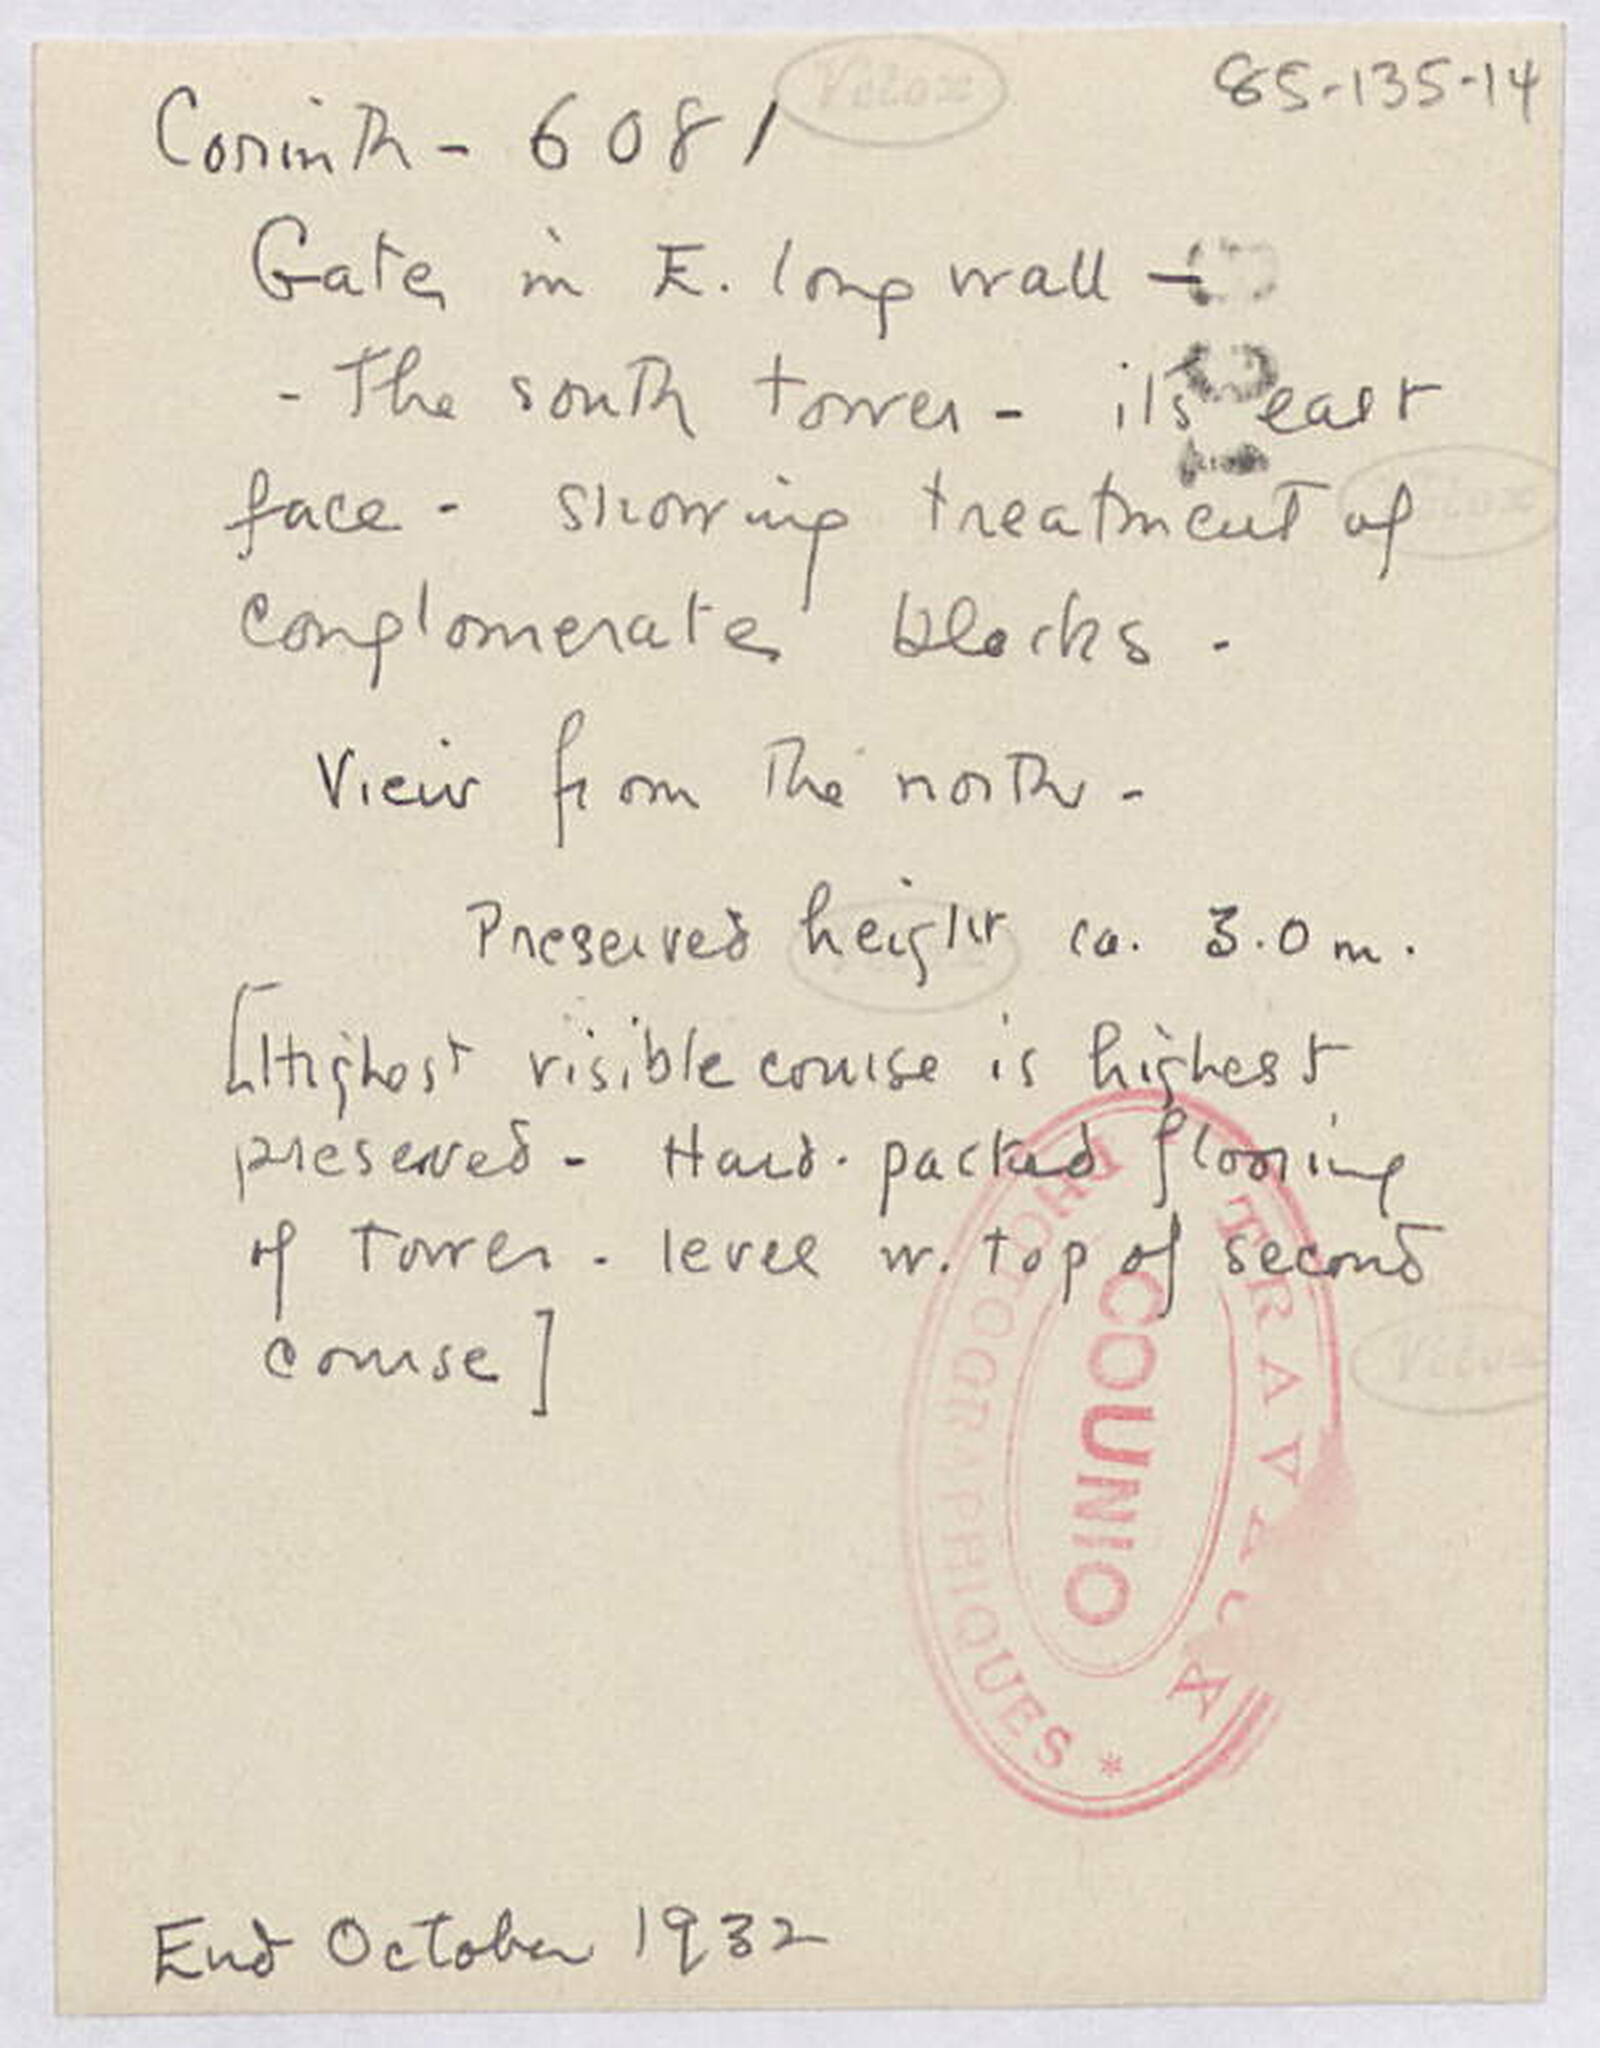 85-135-14
Corinth - 6081
Velox
Gate in E. long wall -
- The south tower - its east
face - showing treatment of
Velox
conglomerate blocks -
View from the north -
Preserved height ca. 3.0 m.
[Highest visible course is highest
preserved - Hard-packed flooring
of tower - level w. top of second
course]
Velox
TRAVAUX
COUNIO
PHOTOGRAPHIQUES *
End October 1932